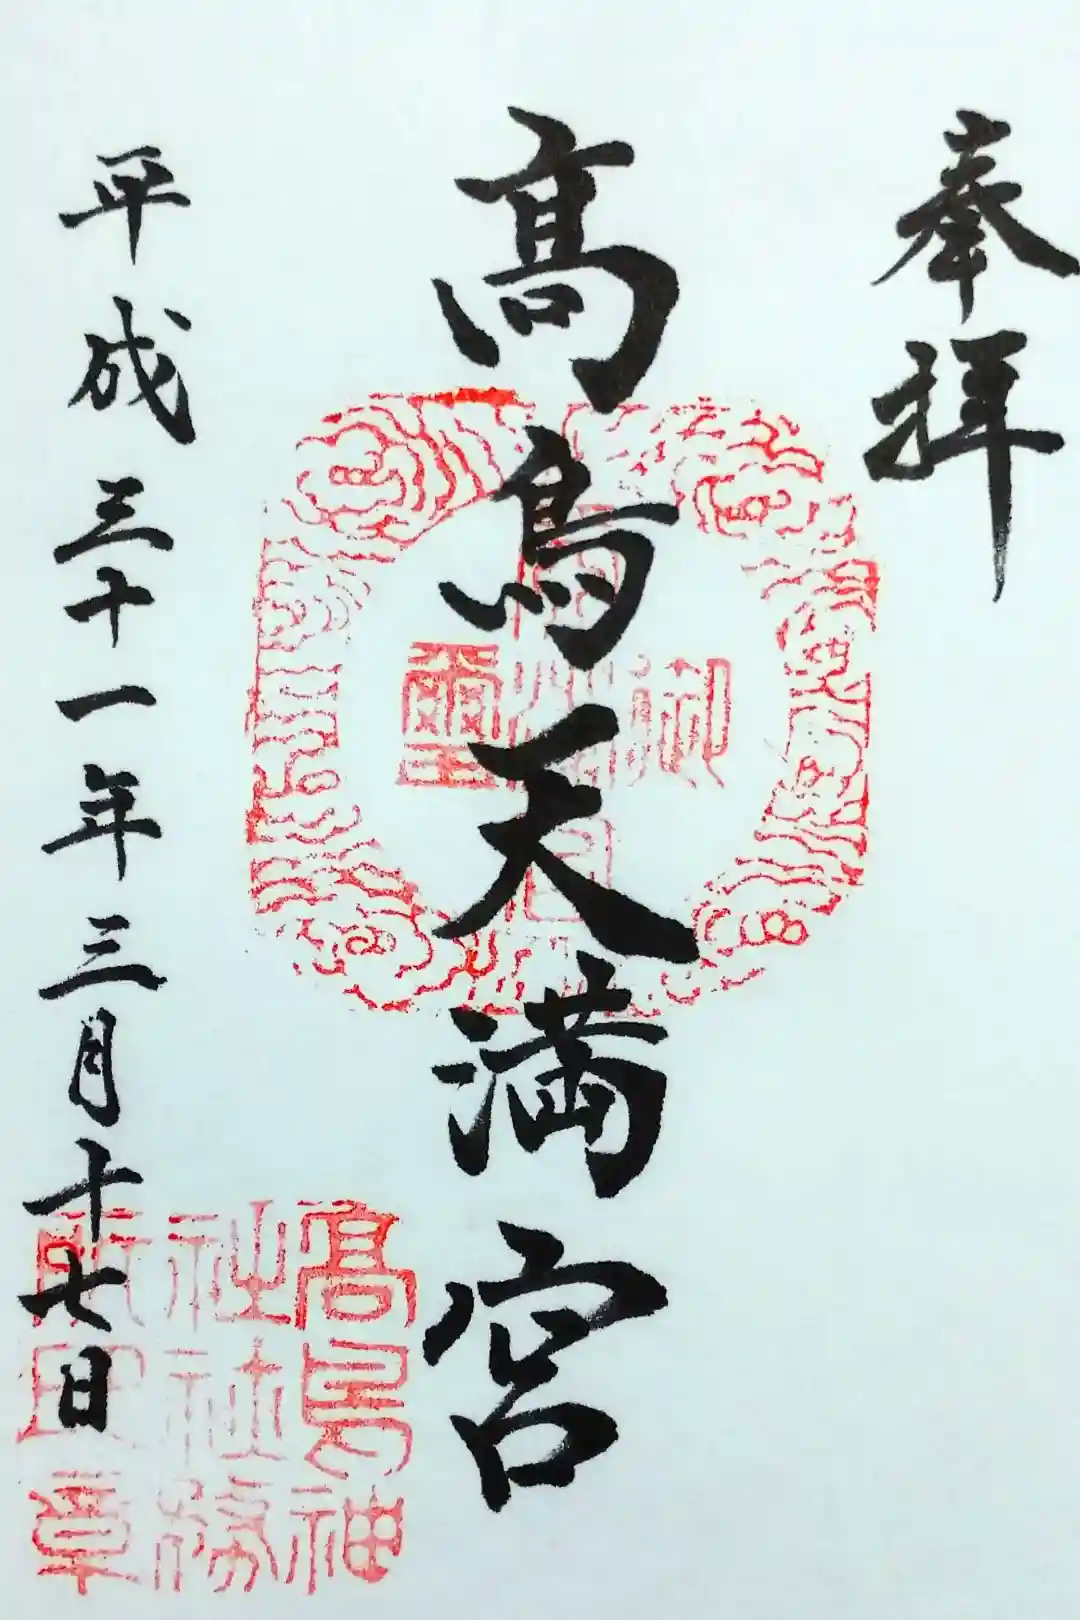 奉拝
髙鳥天満宮
平成三十一年三月十七日
髙鳥神
社社務
所印章